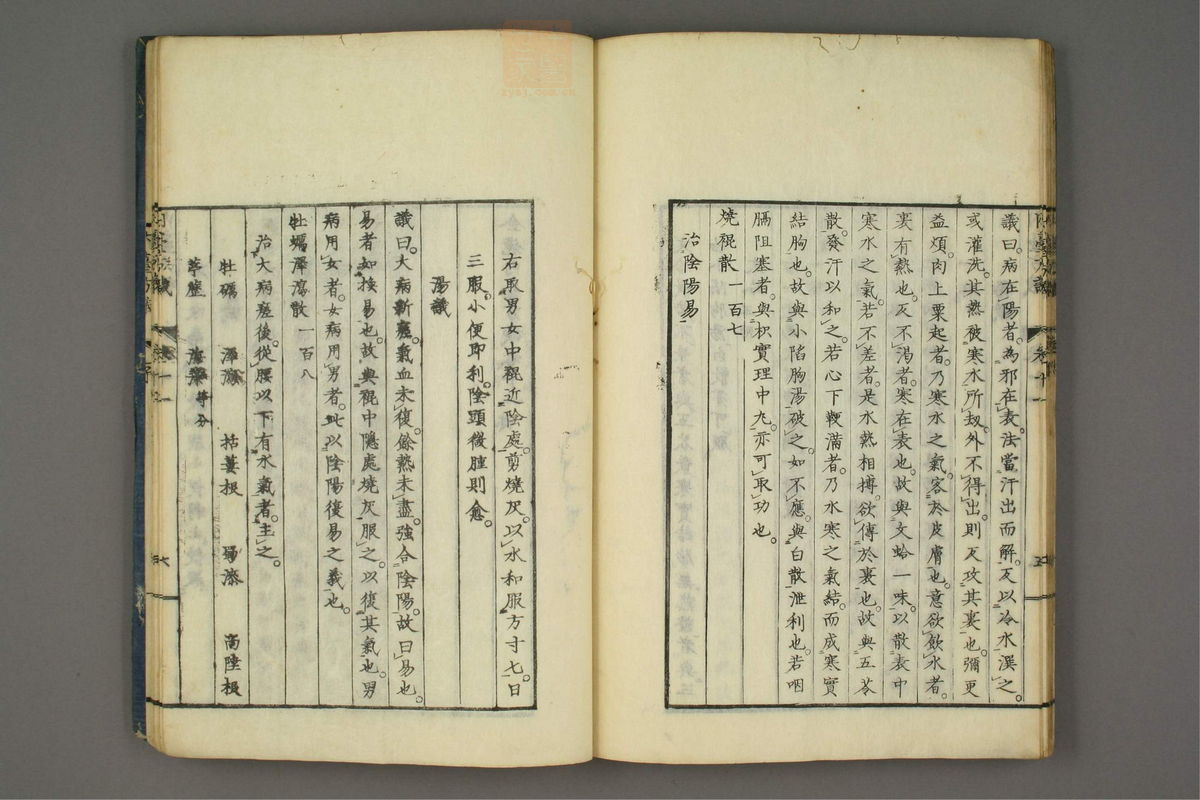 議曰。病在陽者。為邪在表。法當汗出而解。反以冷水潠之。
或灌洗。其熱被寒水所劫。外不得出。則反攻其裏也。彌更
益煩。肉上粟起者。乃寒水之氣。客於皮膚也。意欲飲水者。
裏有熱也。反不渴者。寒在表也。故與文蛤一味。以散表中
寒水之氣。若不差者。是水熱相搏。欲傳於裏也。故與五苓
散。發汗以和之。若心下鞕滿者。乃水寒之氣。結而成寒實
結胸也。故與小陷胸湯破之。如不應。與白散泄利也。若咽
膈阻塞者。與枳實理中丸。亦可取功也。
燒裩散 一百七
治陰陽易
右取男女中裩近陰處。剪燒灰。以水和服方寸七。日
三服。小便即利。陰頭微腫則愈。
湯議
議曰。大病新瘥。氣血未復。餘熱未盡。強合陰陽。故曰易也。
易者如換易也。故與裩中隱處燒灰服之。以復其氣也。男
病用女者。女病用男者。此以陰陽復易之義也。
牡蠣澤瀉散 一百八
治大病瘥後。從腰以下有水氣者。主之。
牡礪 澤瀉 枯蔞根 蜀漆 商陸根
葶藶 海藻等分
卷十一
五
六
zysj.com.cn